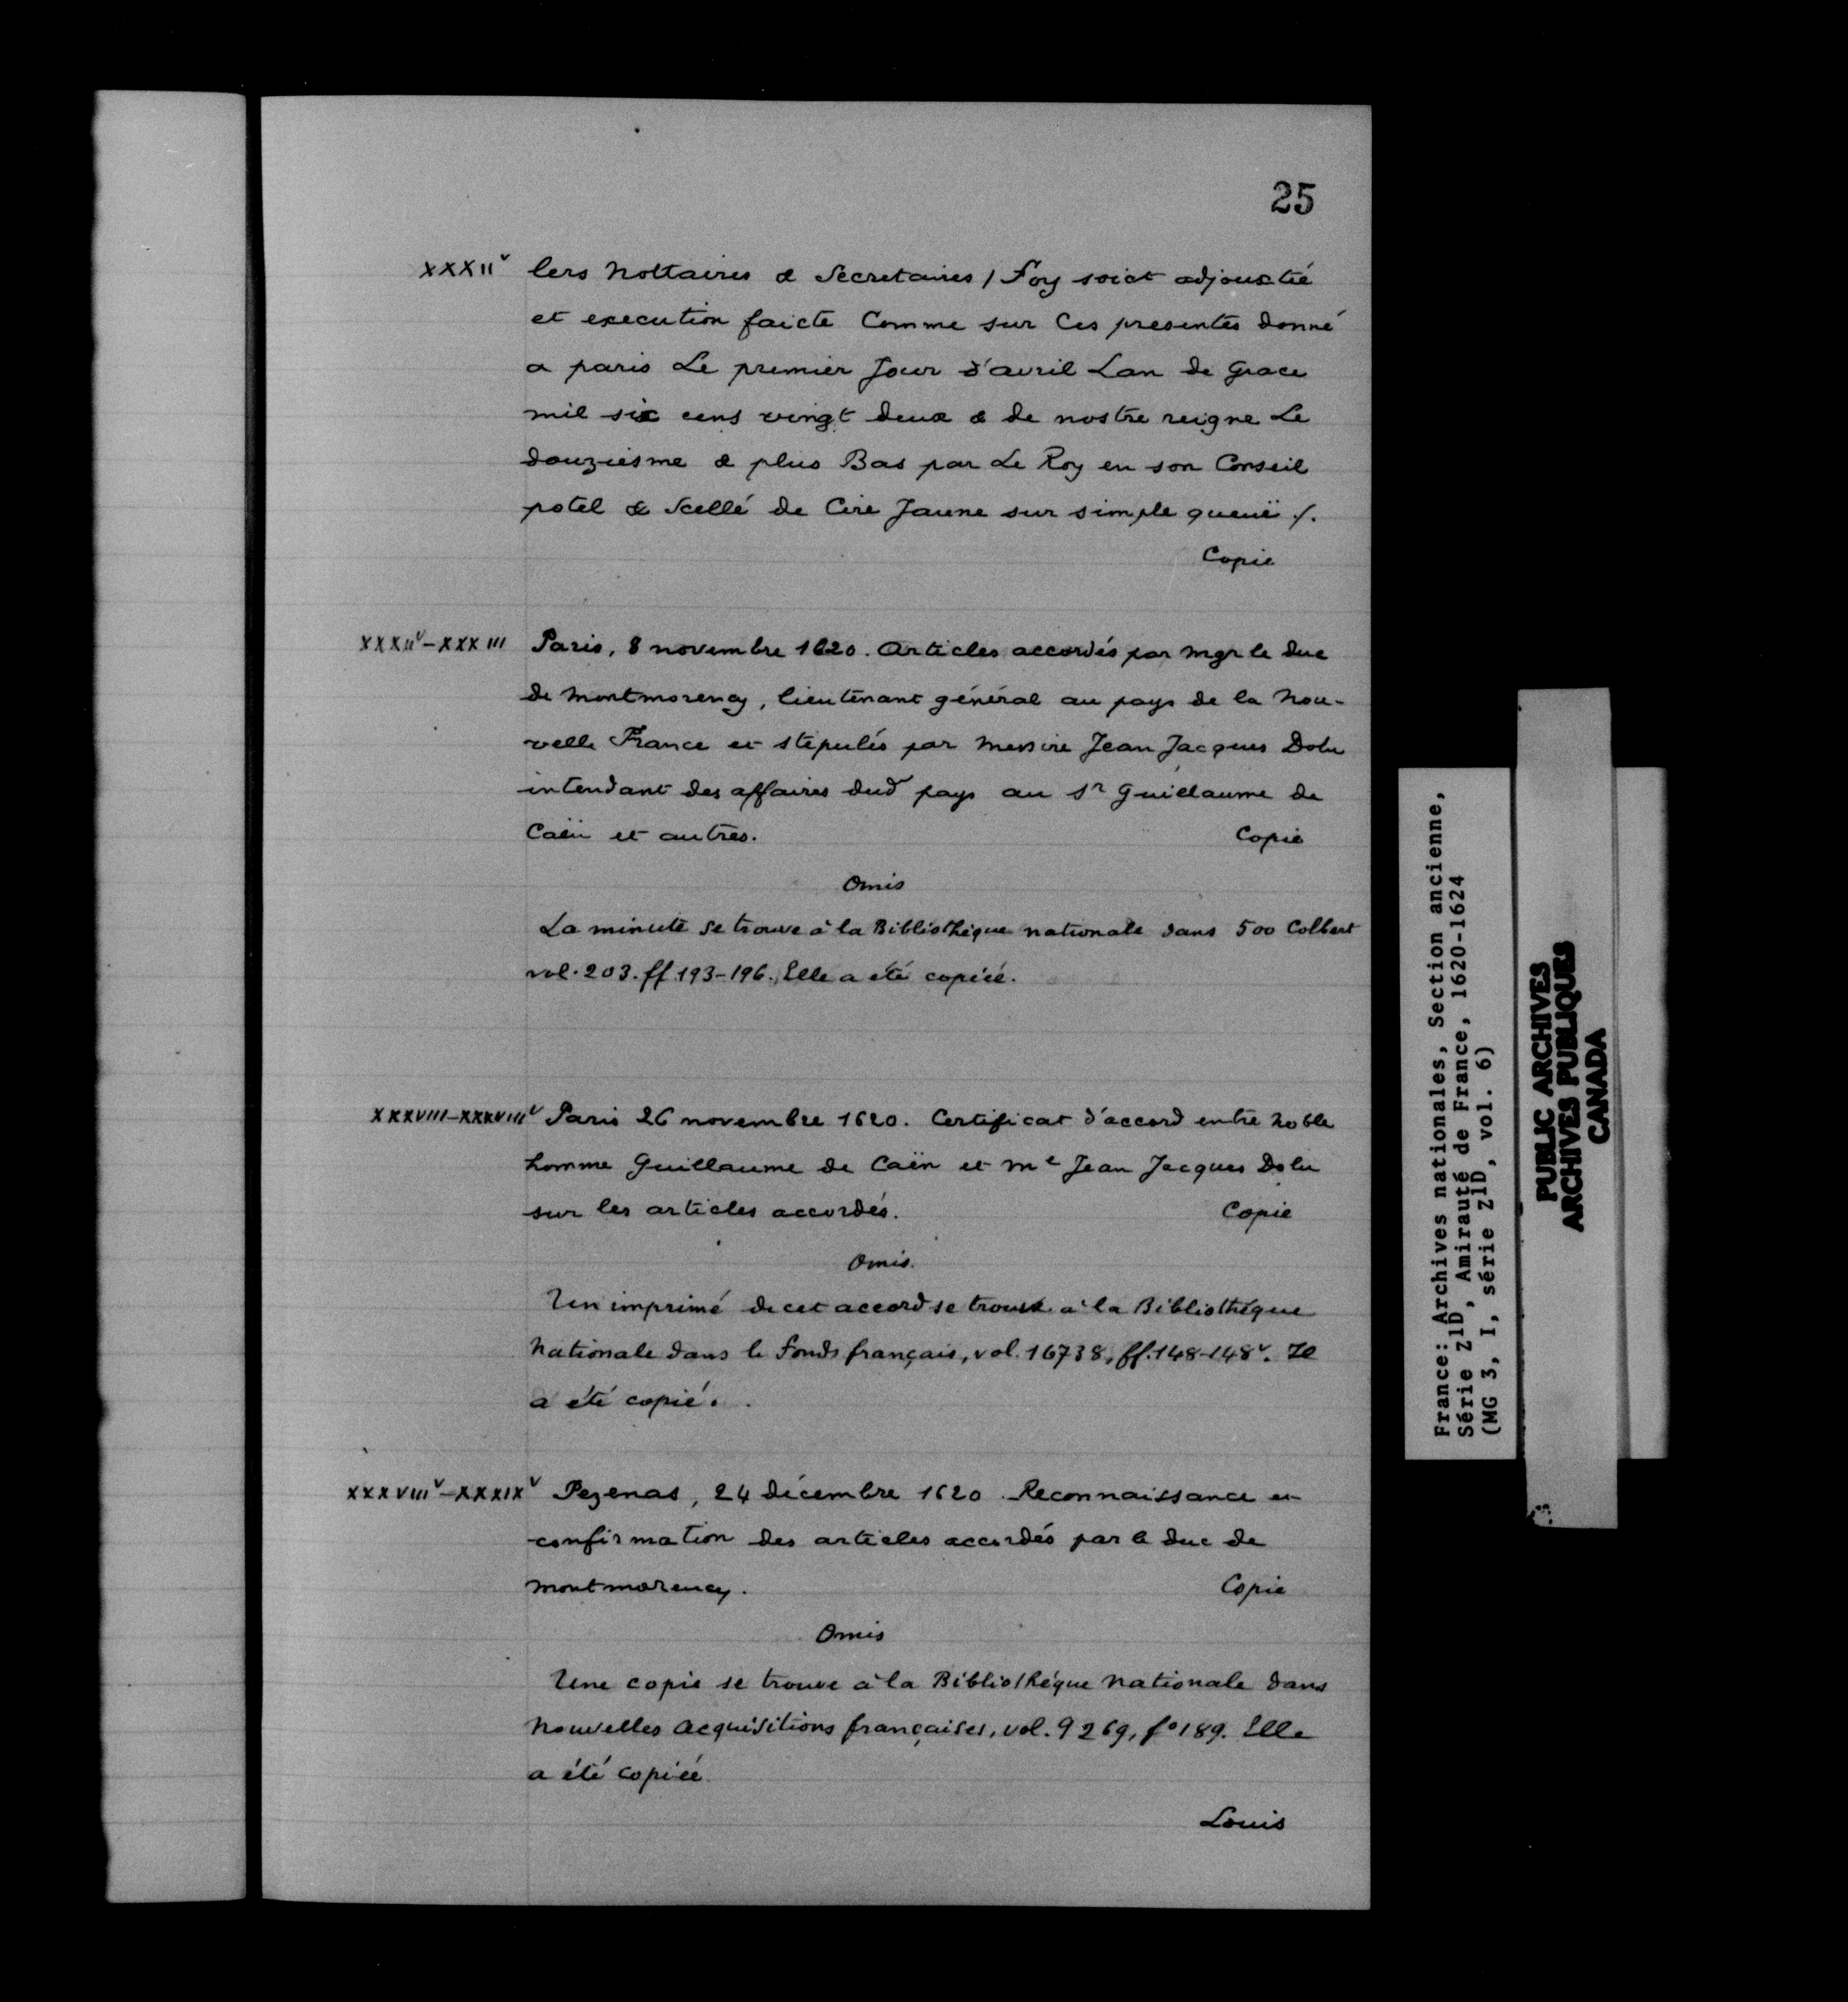 25
XXXII v lers Nottaires & Secretaires / Foy soict adjouxtée
et execution faicte Comme sur Ces presentes donné
a paris Le premier Jour d'avril Lan de Grace
mil six cens vingt deux & de nostre reigne Le
douziesme & plus Bas par Le Roy en son Conseil
potel & Scellé de Cire Jaune sur simple queuë /.
Copie
XXXII v - XXXIII Paris, 8 novembre 1620. Articles accordés par Mgr le duc
de Montmorency, lieutenant général au pays de la Nou-
velle France et stipulés par Messire Jean Jacques Dolu
intendant des affaires dud pays au Sr Guillaume de
Caën et autres. Copie
Omis
La minute se trouve à la Bibliothèque nationale dans 500 Colbert
vol. 203. ff. 193-196. Elle a été copiée.
XXXVIII-XXXVIII v Paris 26 novembre 1620. Certificat d'accord entre noble
homme Guillaume de Caën et Me Jean Jacques Dolu
sur les articles accordés. Copie
Omis.
Un imprimé de cet accord se trouve à la Bibliothèque
Nationale dans le fonds français, vol. 16738, ff. 148-148 v. Il
a été copié.
XXXVIII v - XXXIX v Pezenas, 24 décembre 1620. Reconnaissance et
confirmation des articles accordés par le duc de
Montmorency. Copie
Omis
Une copie se trouve à la Bibliothèque Nationale dans
Nouvelles Acquisitions françaises, vol. 9269, fo 189. Elle
a été copiée
Louis
France: Archives nationales, Section ancienne,
Série Z1D, Amirauté de France, 1620-1624
(MG 3, I, série Z1D, vol. 6)
PUBLIC ARCHIVES
ARCHIVES PUBLIQUES
CANADA